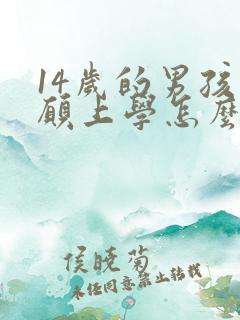 14歲的男孩
願上學怎麼
侯曉菊
未任同意禁止转載